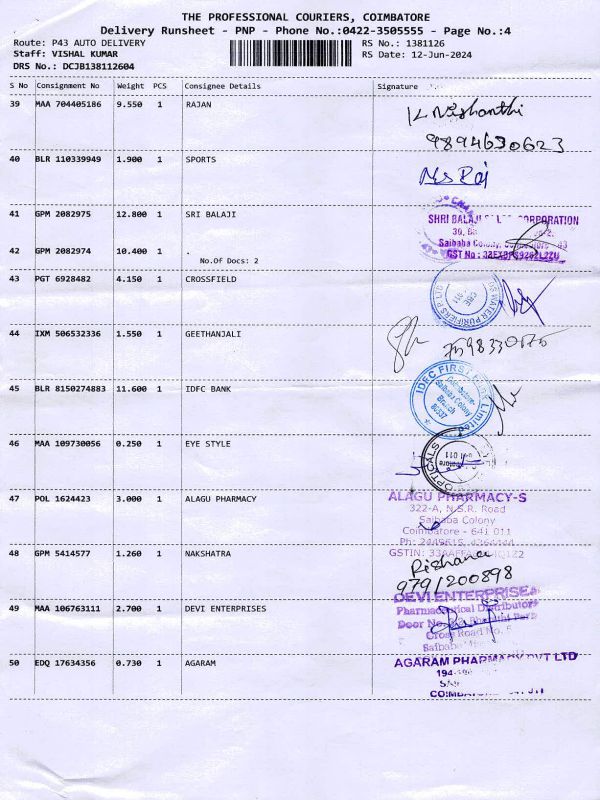 THE PROFESSIONAL COURIERS, COIMBATORE
Delivery Runsheet - PNP - Phone No.:0422-3505555 - Page No.:4
Route: P43 AUTO DELIVERY RS No.: 1381126
Staff: VISHAL KUMAR RS Date: 12-Jun-2024
DRS No.: DCJB138112604
S No Consignment No Weight PCS Consignee Details Signature
39 MAA 704405186 9.550 1 RAJAN
K. Nishanthi
9894630623
40 BLR 110339949 1.900 1 SPORTS
Ms Raj
41 GPM 2082975 12.800 1 SRI BALAJI
SHRI BALAJI CORPORATION
Saibaba Colony,
GST No :
42 GPM 2082974 10.400 1 .
No.Of Docs: 2
43 PGT 6928482 4.150 1 CROSSFIELD
WATER PURIFIERS P LTD
44 IXM 506532336 1.550 1 GEETHANJALI
45 BLR 8150274883 11.600 1 IDFC BANK
IDFC FIRST Bank Limited
Coimbatore-
Saibaba Colony
Branch
46 MAA 109730056 0.250 1 EYE STYLE
OPTICALS
47 POL 1624423 3.000 1 ALAGU PHARMACY
ALAGU PHARMACY-S
322-A, N.S.R. Road
Saibaba Colony
Coimbatore - 641 011
48 GPM 5414577 1.260 1 NAKSHATRA
Rishana
9791200898
49 MAA 106763111 2.700 1 DEVI ENTERPRISES
DEVI ENTERPRISES
Pharmaceutical Distributors
Door No.
Cross Road No. 5
Saibaba
50 EDQ 17634356 0.730 1 AGARAM
AGARAM PHARMACY PVT LTD
COIMBATORE